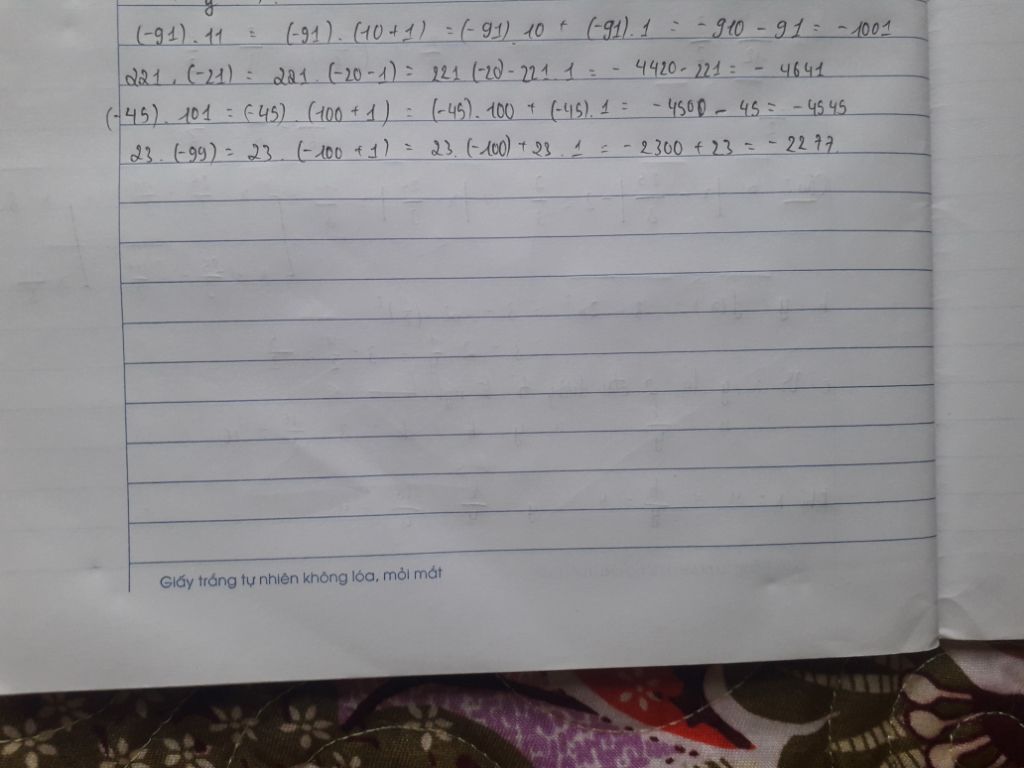 (-91) . 11 = (-91) . (10 + 1) = (-91) . 10 + (-91) . 1 = - 910 - 91 = - 1001
221 . (-21) = 221 . (-20 - 1) = 221 (-20) - 221 . 1 = - 4420 - 221 = - 4641
(-45) . 101 = (-45) . (100 + 1) = (-45) . 100 + (-45) . 1 = - 4500 - 45 = - 4545
23 . (-99) = 23 . (-100 + 1) = 23 . (-100) + 23 . 1 = - 2300 + 23 = - 2277.
Giấy trắng tự nhiên không lóa, mỏi mắt